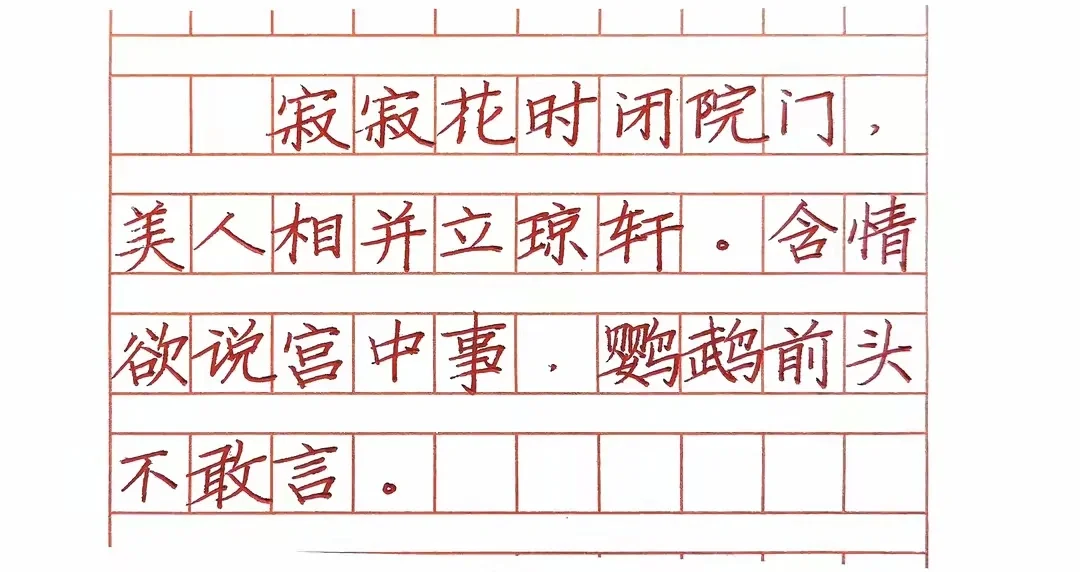 寂寂花时闭院门，
美人相并立琼轩。含情
欲说宫中事，鹦鹉前头
不敢言。